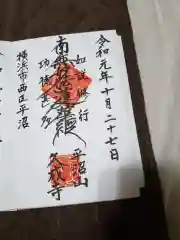 令和元年十月二十七日
如説修行
平沼山
南無妙法蓮華経
久成寺
功徳甚多
横浜市西区平沼